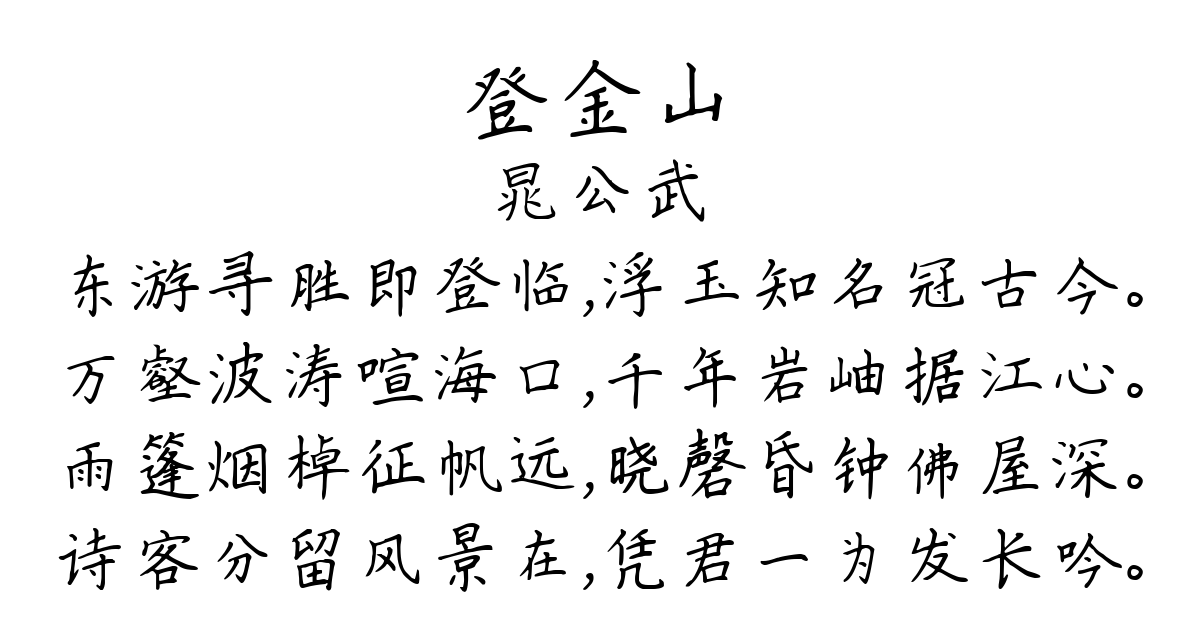 登金山
晁公武
东游寻胜即登临,浮玉知名冠古今。
万壑波涛喧海口,千年岩岫据江心。
雨篷烟棹征帆远,晓磬昏钟佛屋深。
诗客分留风景在,凭君一为发长吟。